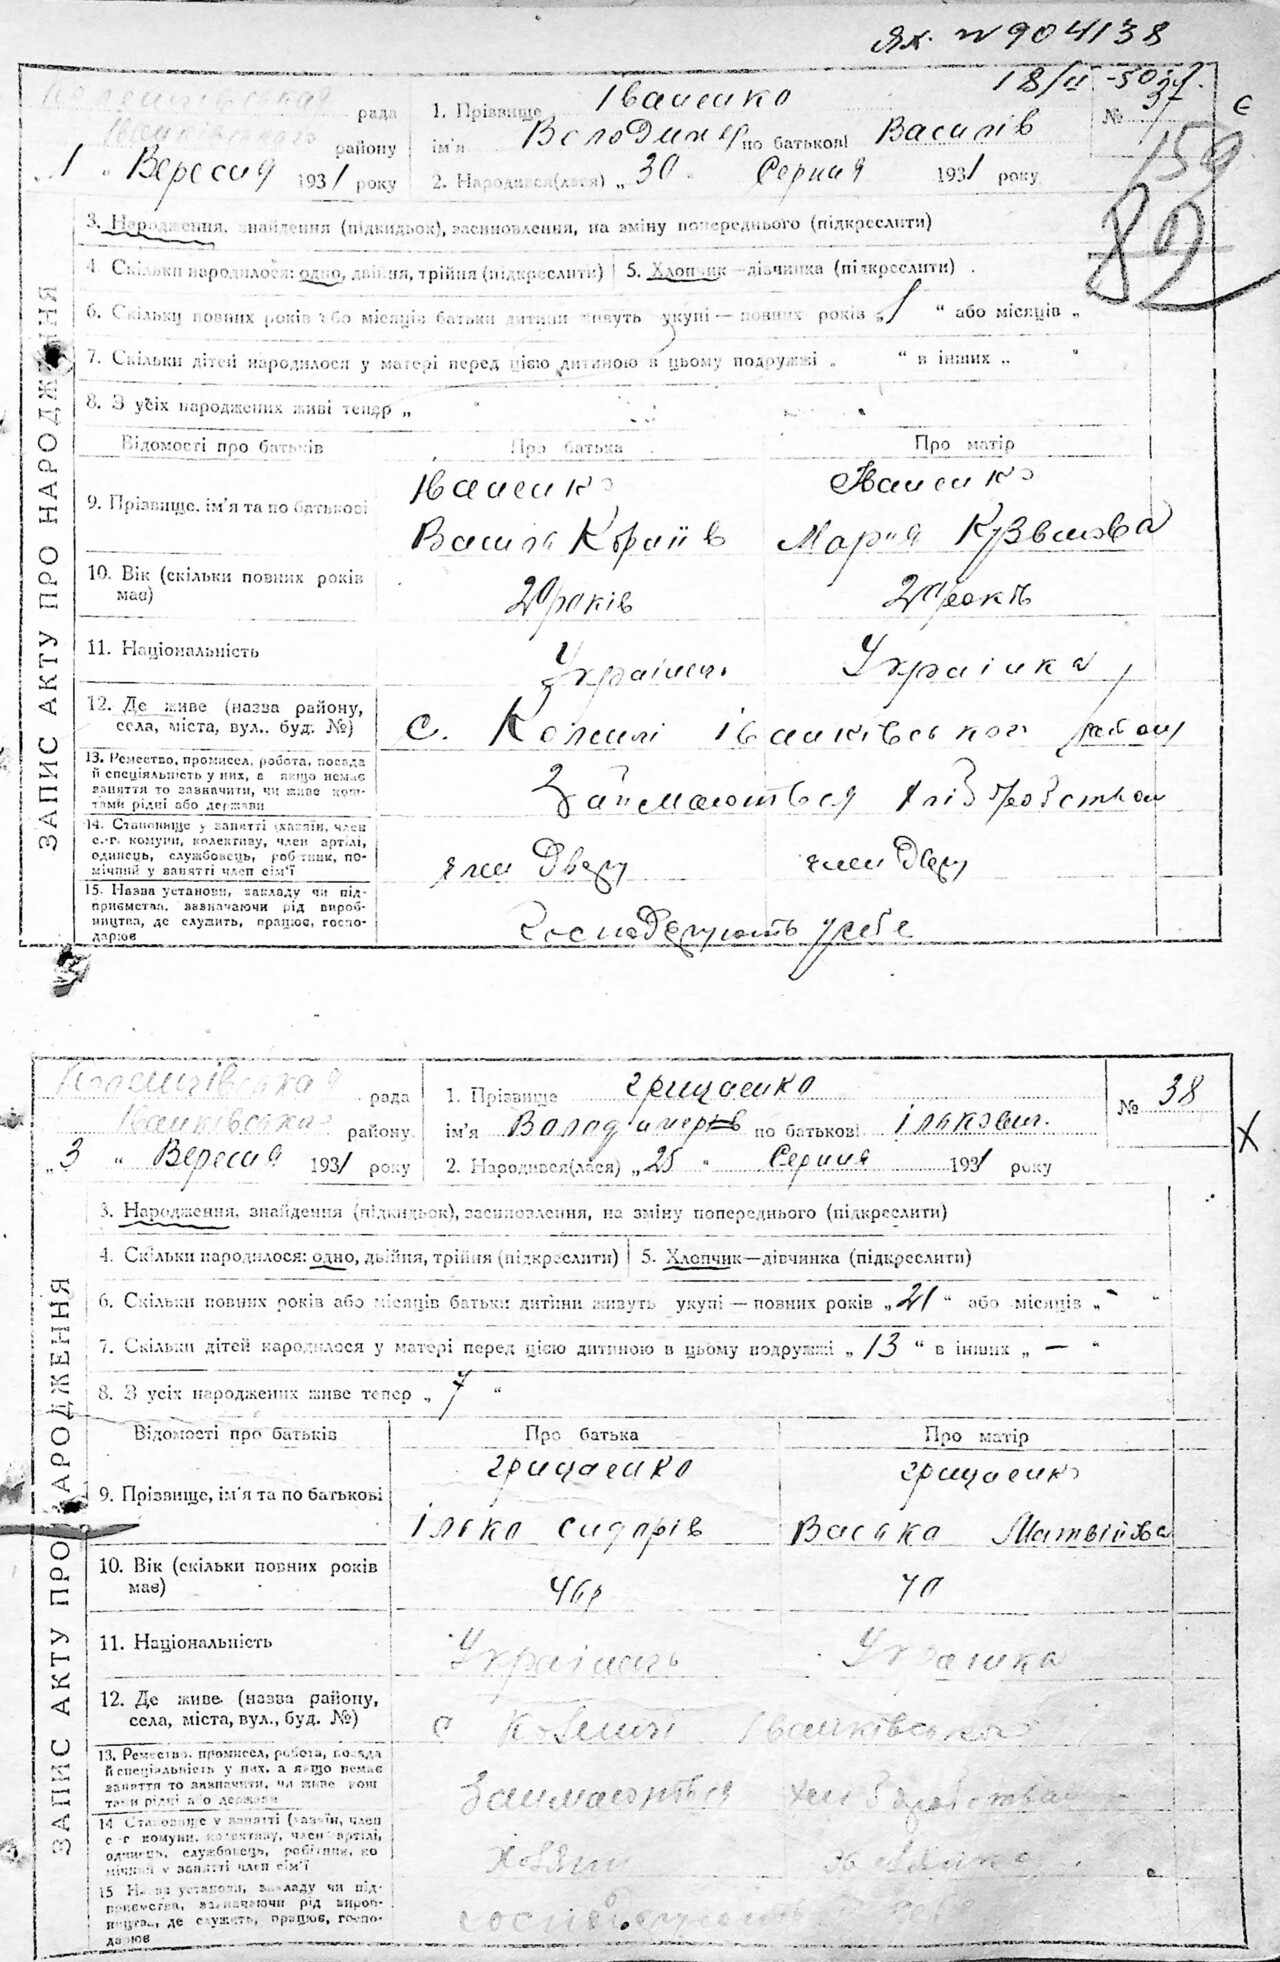 ЯХ. N 904138
18/II - 50 р.
рада
1. Прізвище Іваненко
№ 37
є
району
ім'я Володимер по батькові Василів
159
„1 " Вересня 1931 року
2. Народився(лася) „30 " Серпня 1931 року
82
ЗАПИС АКТУ ПРО НАРОДЖЕННЯ
3. Народження, знайдення (підкидьок), засиновлення, на зміну попереднього (підкреслити)
4. Скільки народилося: одно, двійня, трійня (підкреслити) 5. Хлопчик—дівчинка (підкреслити)
6. Скільки повних років або місяців батьки дитини живуть укупі — повних років „1 " або місяців „
7. Скільки дітей народилося у матері перед цією дитиною в цьому подружжі „ " в інших „ "
8. З усіх народжених живі тепер „ "
Відомості про батьків Про батька Про матір
9. Прізвище, ім'я та по батькові
Іваненко Іваненко
Василь Мария
10. Вік (скільки повних років має)
20 років 20 років
11. Національність
Українець Українка
12. Де живе (назва району, села, міста, вул., буд. №)
с. Іванківського району
13. Ремество, промисел, робота, посада й спеціяльність у них, а якщо немає заняття то зазначити, чи живе коштами рідні або держави
Займаються хліборобством
14. Становище у занятті (хазяїн, член с.-г. комуни, колективу, член артілі, одинець, службовець, робітник, помічний у занятті член сім'ї
член двору член двору
15. Назва установи, закладу чи підприємства, зазначаючи рід виробництва, де служить, працює, господарює
Господарюють у себе
рада
1. Прізвище Грищенко
№ 38
Іванківського району
ім'я по батьковіІлькович.
X
„3 " Вересня 1931 року
2. Народився(лася) „25 " Серпня 1931 року
ЗАПИС АКТУ ПРО НАРОДЖЕННЯ
3. Народження, знайдення (підкидьок), засиновлення, на зміну попереднього (підкреслити)
4. Скільки народилося: одно, двійня, трійня (підкреслити) 5. Хлопчик—дівчинка (підкреслити)
6. Скільки повних років або місяців батьки дитини живуть укупі — повних років „21 " або місяців „- "
7. Скільки дітей народилося у матері перед цією дитиною в цьому подружжі „13 " в інших „— "
8. З усіх народжених живе тепер „7 "
Відомості про батьків Про батька Про матір
9. Прізвище, ім'я та по батькові
Грищенко Грищенко
Ілько Сидорів Васька Матвійова
10. Вік (скільки повних років має)
46р 40
11. Національність
Українець Українка
12. Де живе (назва району, села, міста, вул., буд. №)
с Іванківського
13. Ремество, промисел, робота, посада й спеціяльність у них, а якщо немає заняття то зазначити, чи живе коштами рідні або держави
Займаються хліборобством
14 Становище у занятті (хазяїн, член с-г комуни, колективу, член артілі, одинець, службовець, робітник, помічний у занятті член сім'ї
Хозяїн
15 Назва установи, закладу чи підприємства, зазначаючи рід виробництва, де служить, працює, господарює
господарюють